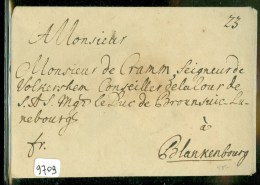 23
A Monsieur
Monsieur de Cramm Seigneur de
Volkersdem Conseiller de la Cour de
S.A.S. Mgr le Duc de Brounsvic Lu-
nebourg
à
fr. Blankenbourg
9709